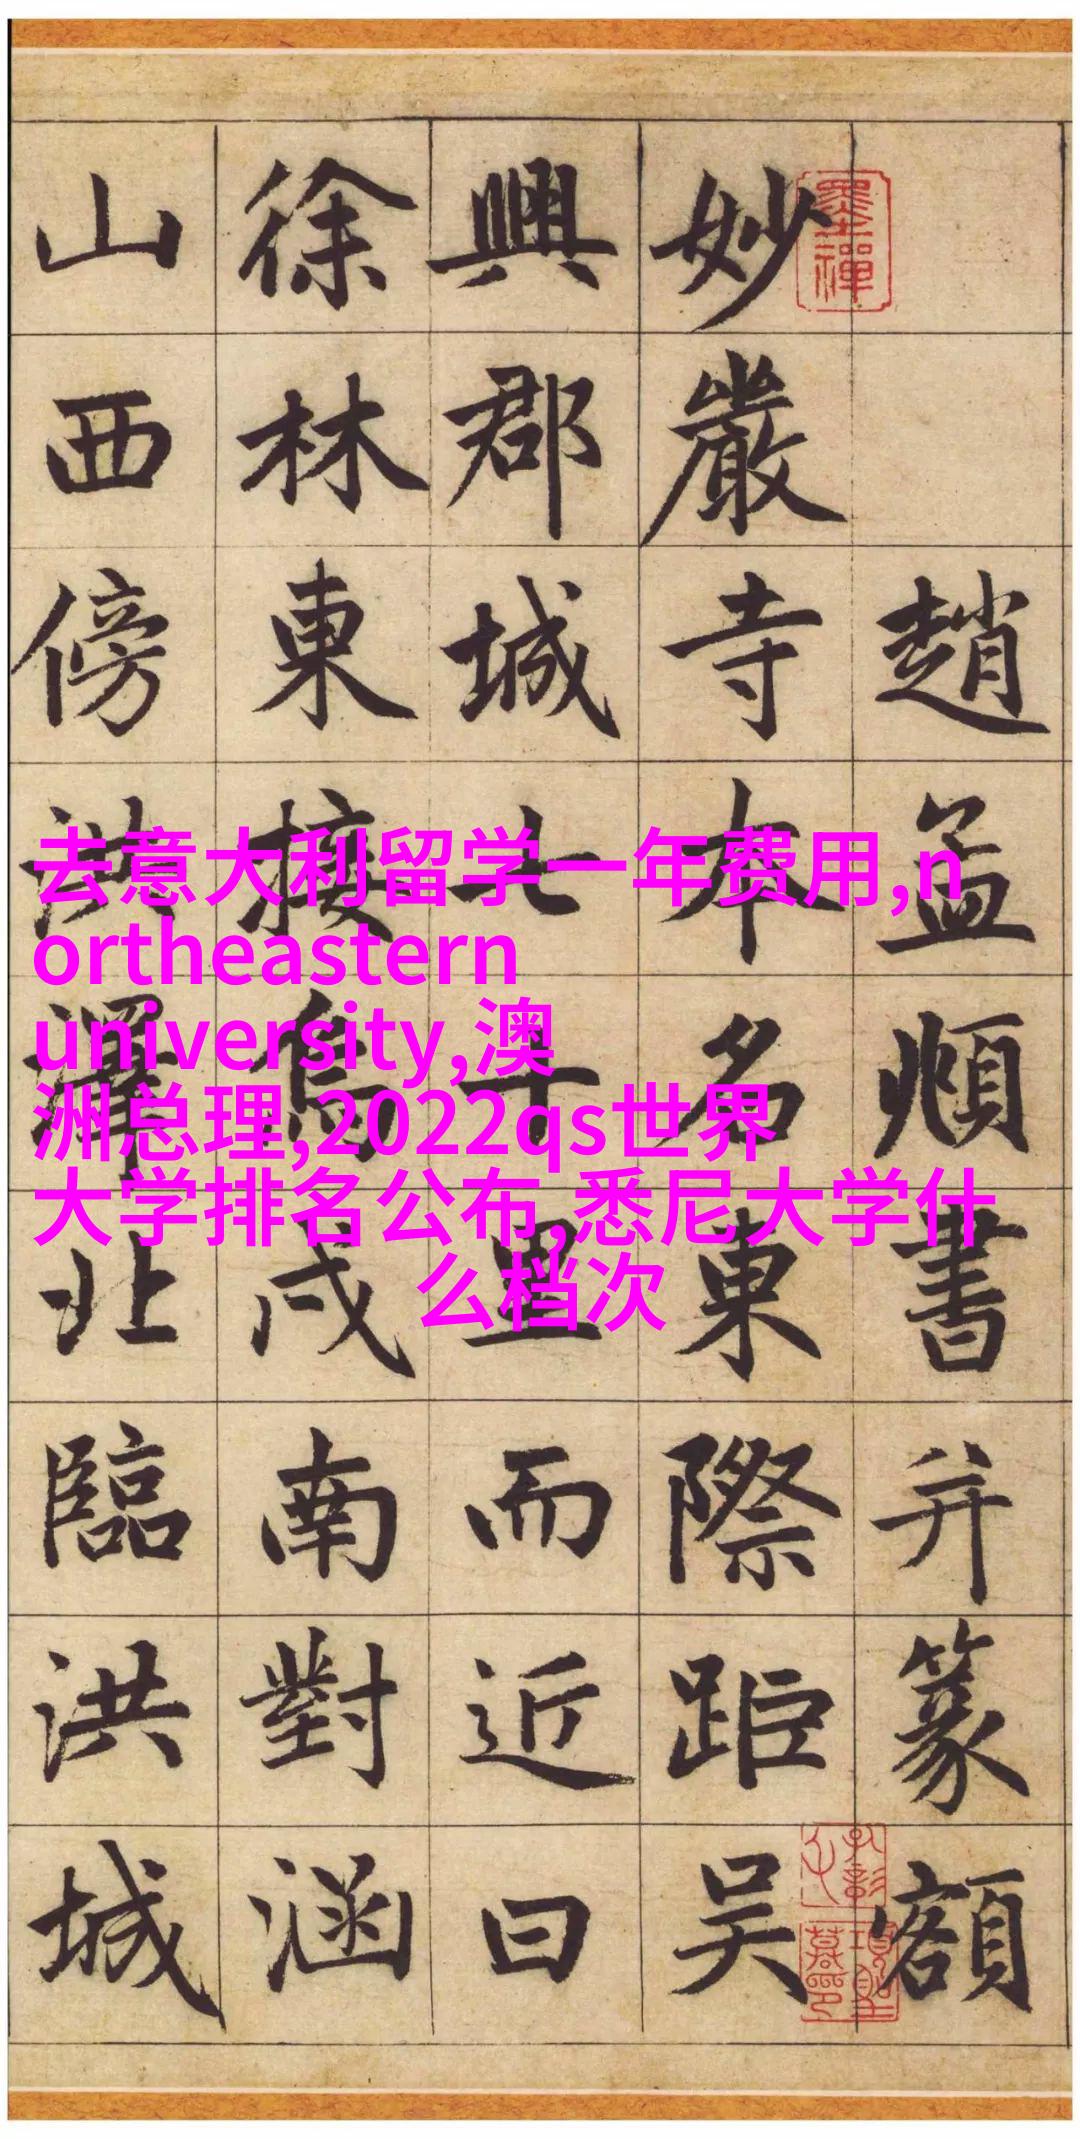 趙孟頫書并篆額
妙嚴寺本名東際距吳
興郡城七十里而近曰
徐林東接烏戍南對涵
山西傍洪澤北臨洪城
墨禪
去意大利留学一年费用,n
ortheastern
university,澳
洲总理,2022qs世界
大学排名公布,悉尼大学什
么档次